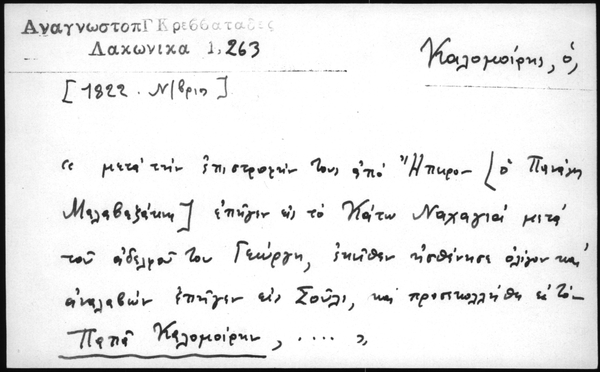 ΑναγνωστοπΓ Κρεββαταδες
Λακωνικα 1, 263
Καλομοίρης, ὁ,
[1822. Ν/βριος]
« μετά τήν ἐπιστροφήν τους ἀπό Ἤπειρον [ὁ Πανάγος
] ἐπῆγεν εἰς τό Κάτω Ναχαγιέ μετά
τοῦ ἀδελφοῦ του Γεώργη, ἐκεῖθεν ἠσθένησε ὀλίγον καί
ἀναλαβών ἐπῆγεν εἰς Σούλι, καί προσεκολλήθη εἰς τόν
Παπᾶ Καλομοίρην, .... »